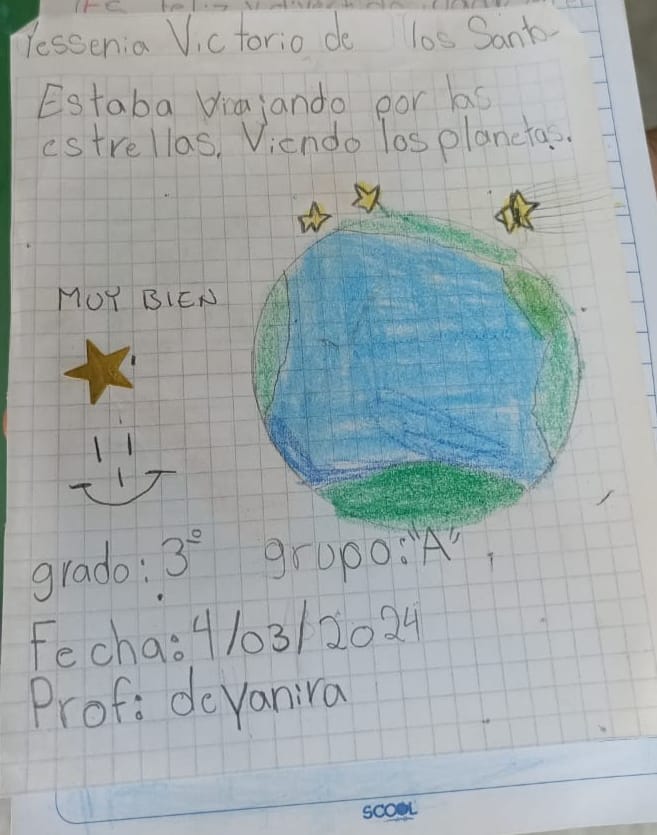 Yessenia Victorio de los Santo
Estaba Viajando por las
estrellas. Viendo los planetas.
MUY BIEN
grado: 3° grupo: "A".
Fecha: 4/03/2024
Prof: deyanira
SCOOL